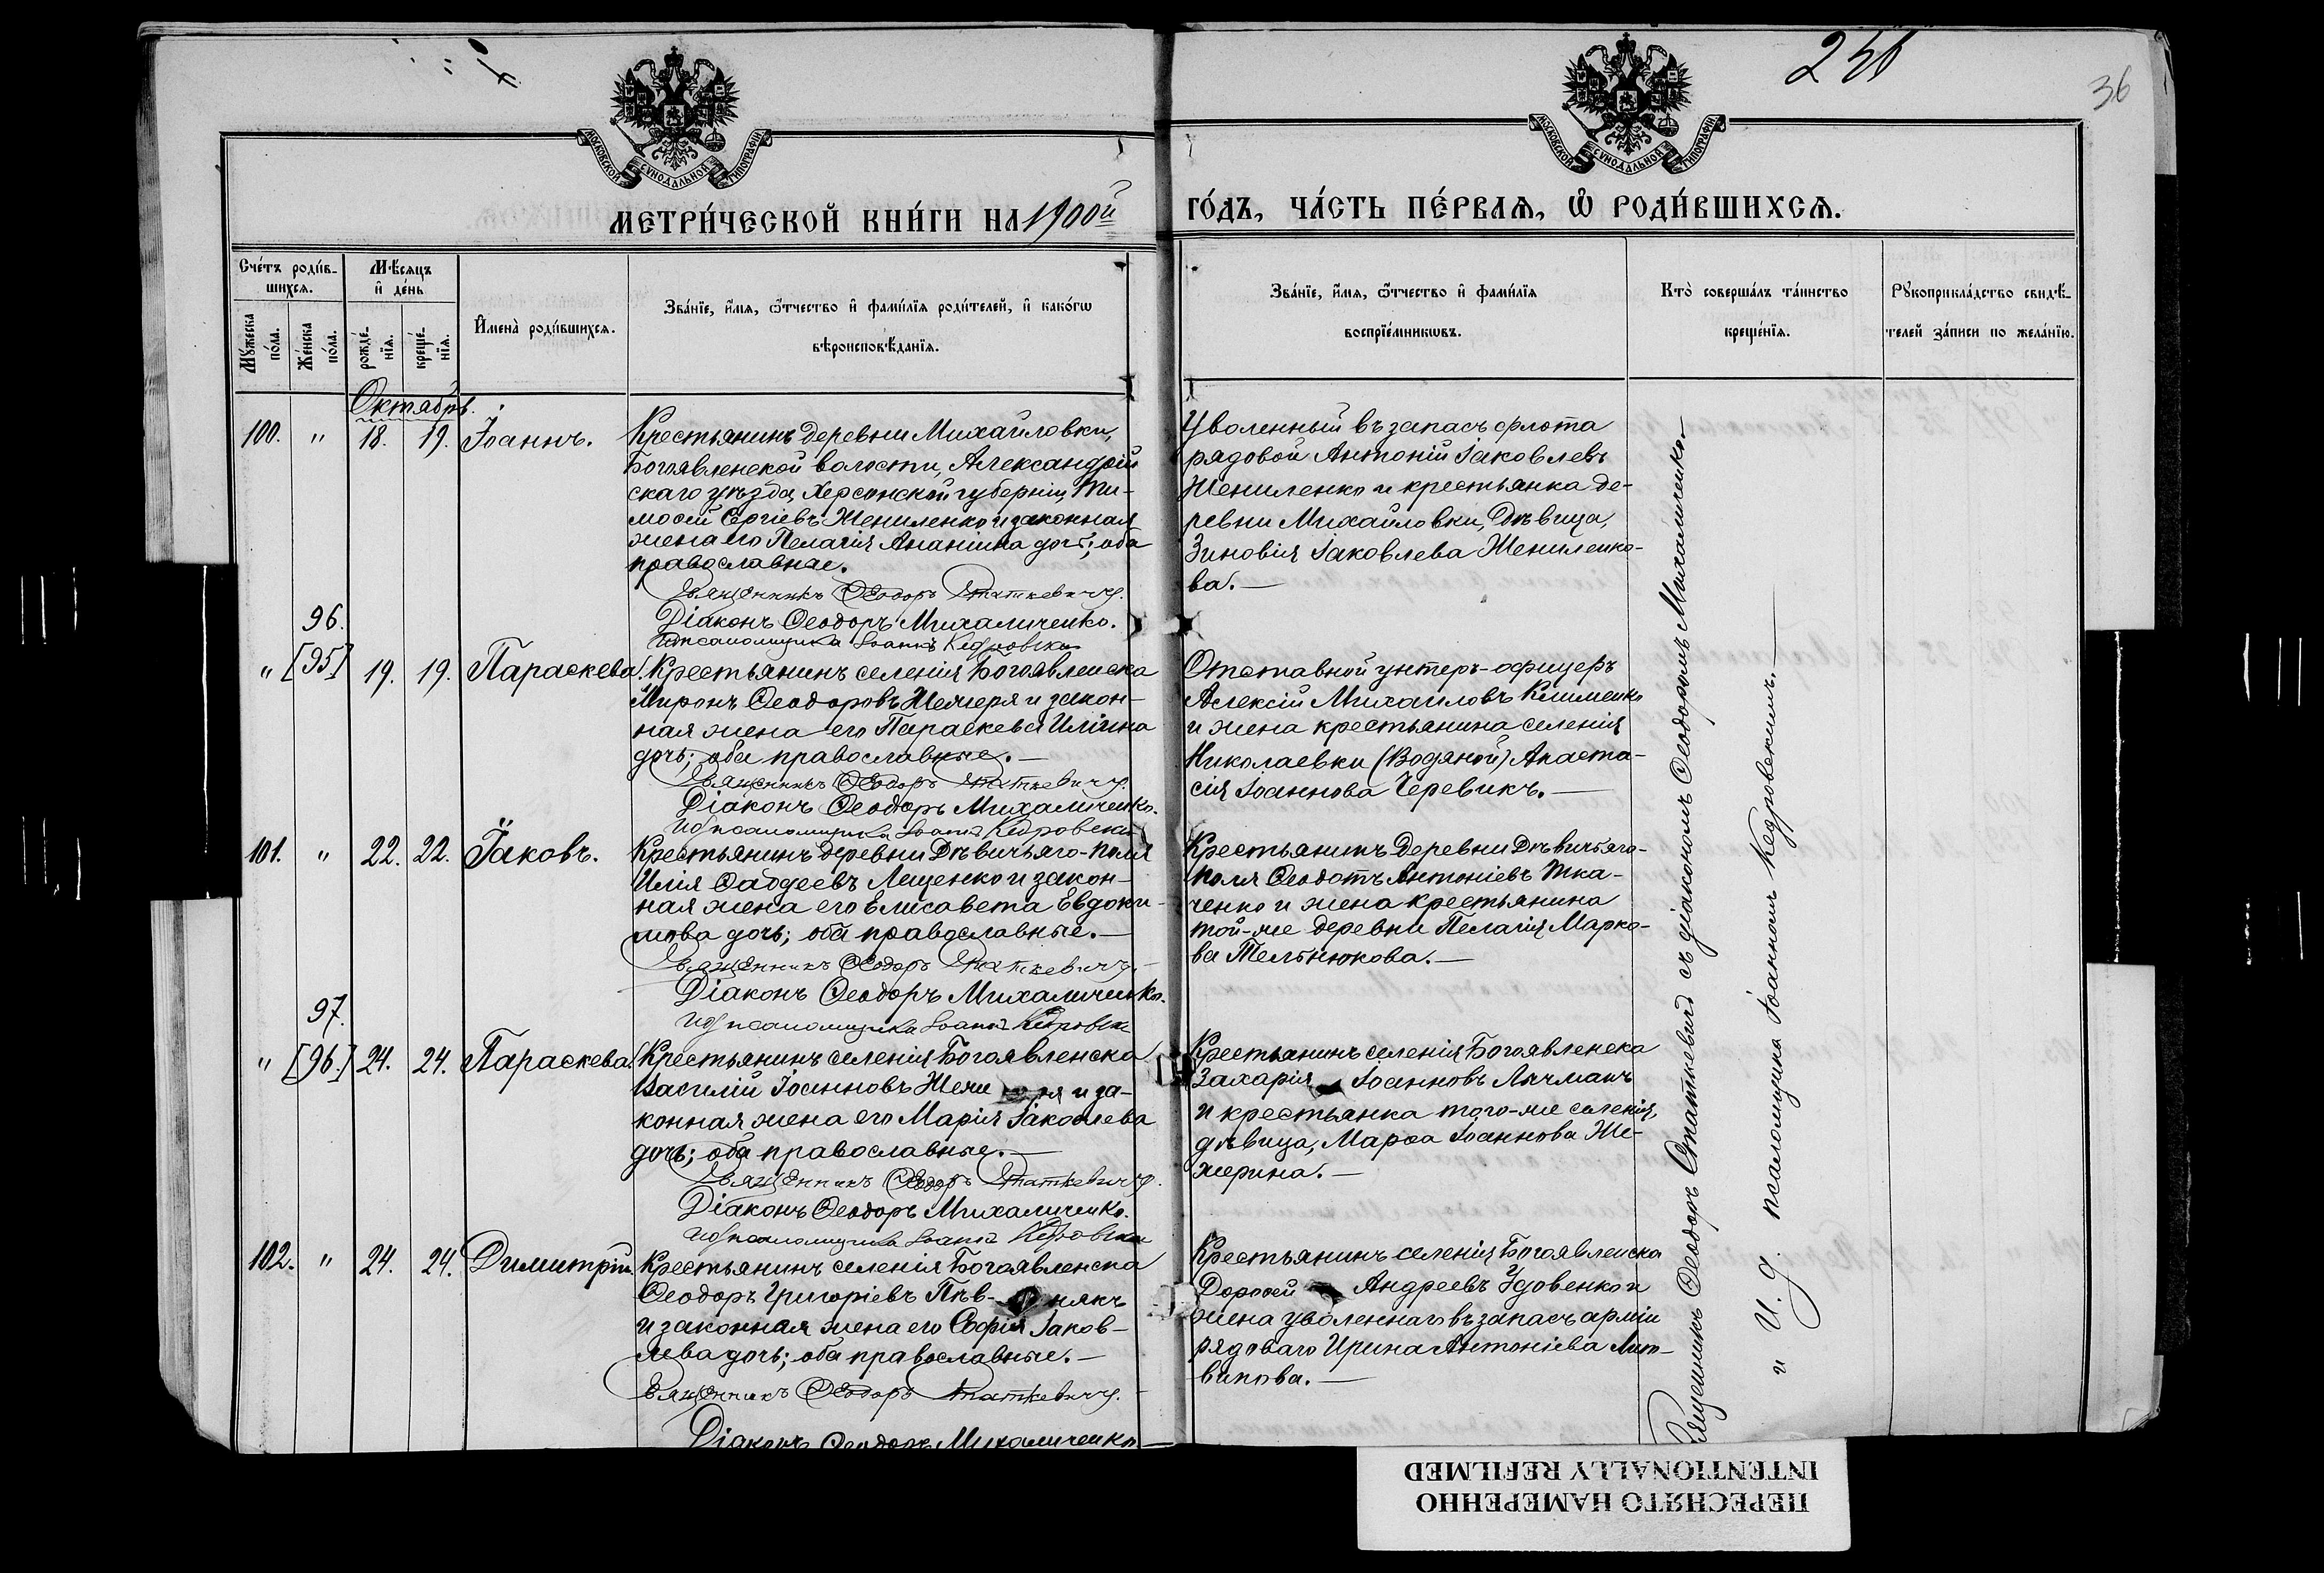 256
36
МОСКОВСКОЙ СѴНОДАЛЬНОЙ ТИПОГРАФІИ
МОСКОВСКОЙ СѴНОДАЛЬНОЙ ТИПОГРАФІИ
МЕТРИ́ЧЕСКОЙ КНИ́ГИ НА 1900й ГО́ДЪ, ЧА́СТЬ ПЕ́РВАѦ, Ѡ РОДИ́ВШИХСѦ.
Сче́тъ роди́в-
шихсѧ.
Мѣ́сѧцъ
и҆ де́нь
Мꙋ́жеска по́ла.
Же́нска по́ла.
рожде́-
нїѧ.
креще́-
нїѧ.
И҆мена̀ роди́вшихсѧ.
Зва́нїе, и҆́мѧ, ѻ҆́тчество и҆ фами́лїѧ роди́телей, и҆ како́гѡ
вѣроисповѣ́данїѧ.
Зва́нїе, и҆́мѧ, ѻ҆́тчество и҆ фами́лїѧ
воспрїе́мникѡвъ.
Кто̀ соверша́лъ та́инство
креще́нїѧ.
Рꙋкоприкла́дство свидѣ́-
телей за́писи по жела́нїю.
Октябрь.
100. " 18. 19. Іоаннъ.
Крестьянинъ деревни Михайловки,
Богоявленской волости, Александрій
скаго уѣзда, Херсонской губерніи, Ти-
моѳей Сергіевъ Жениленко и законная
жена его Пелагія Ананіина дочь; оба
православные.
Священникъ Ѳеодоръ Опаткевичъ.
Діаконъ Ѳеодоръ Михаличенко.
Ид псаломщика Іоаннъ Кедровскій
Уволенный въ запасъ флота
рядовой Антоній Іаковлевъ
Жениленко и крестьянка де-
ревни Михайловки, дѣвица,
Зиновія Іаковлева Жениленко-
ва.—
96.
" [95] 19. 19. Параскева.
Крестьянинъ селенія Богоявленска
Миронъ Ѳеодоровъ Жемеря и закон-
ная жена его Параскева Иліина
дочь; оба православные.—
Священникъ Ѳеодоръ Опаткевичъ.
Діаконъ Ѳеодоръ Михаличенко.
Ид псаломщика Іоаннъ Кедровскій
Отставной унтеръ-офицеръ
Алексій Михаиловъ Клименко
и жена крестьянина селенія
Николаевки (Водяной) Анаста-
сія Іоаннова Черевикъ.—
101. " 22. 22. Іаковъ.
Крестьянинъ деревни Дѣвичьяго-поля
Илія Ѳаддеевъ Лещенко и закон-
ная жена его Елисавета Евдоки-
мова дочь; оба православные.—
Священникъ Ѳеодоръ Опаткевичъ.
Діаконъ Ѳеодоръ Михаличенко.
Ид псаломщика Іоаннъ Кедровскій
Крестьянинъ деревни Дѣвичьяго-
поля Ѳеодотъ Антоніевъ Тка-
ченко и жена крестьянина
той-же деревни Пелагія Марко-
ва Тельнюкова.—
97.
" [96.] 24. 24. Параскева.
Крестьянинъ селенія Богоявленска
Василій Іоанновъ Жеме ря и за-
конная жена его Марія Іаковлева
дочь; оба православные.—
Священникъ Ѳеодоръ Опаткевичъ.
Діаконъ Ѳеодоръ Михаличенко.
Ид псаломщика Іоаннъ Кедровскій
Крестьянинъ селенія Богоявленска
Захарія Іоанновъ Личманъ
и крестьянка того-же селенія,
дѣвица, Марѳа Іоаннова Же-
мерина.—
102. " 24. 24. Димитрій.
Крестьянинъ селенія Богоявленска
Ѳеодоръ Григоріевъ Пѣв- някъ
и законная жена его Софія Іаков-
лева дочь; оба православные.—
Священникъ Ѳеодоръ Опаткевичъ.
Діаконъ Ѳеодоръ Михаличенко
Крестьянинъ селенія Богоявленска
Дороѳей Андреевъ Удовенко и
жена уволеннаго въ запасъ арміи
рядоваго Ирина Антоніева Лит-
винова.—
Священникъ Ѳеодоръ Опаткевичъ съ діакономъ Ѳеодоромъ Михаличенко.—
и И. д. псаломщика Іоанномъ Кедровскимъ.—
ПЕРЕСНЯТО НАМЕРЕННО
INTENTIONALLY REFILMED